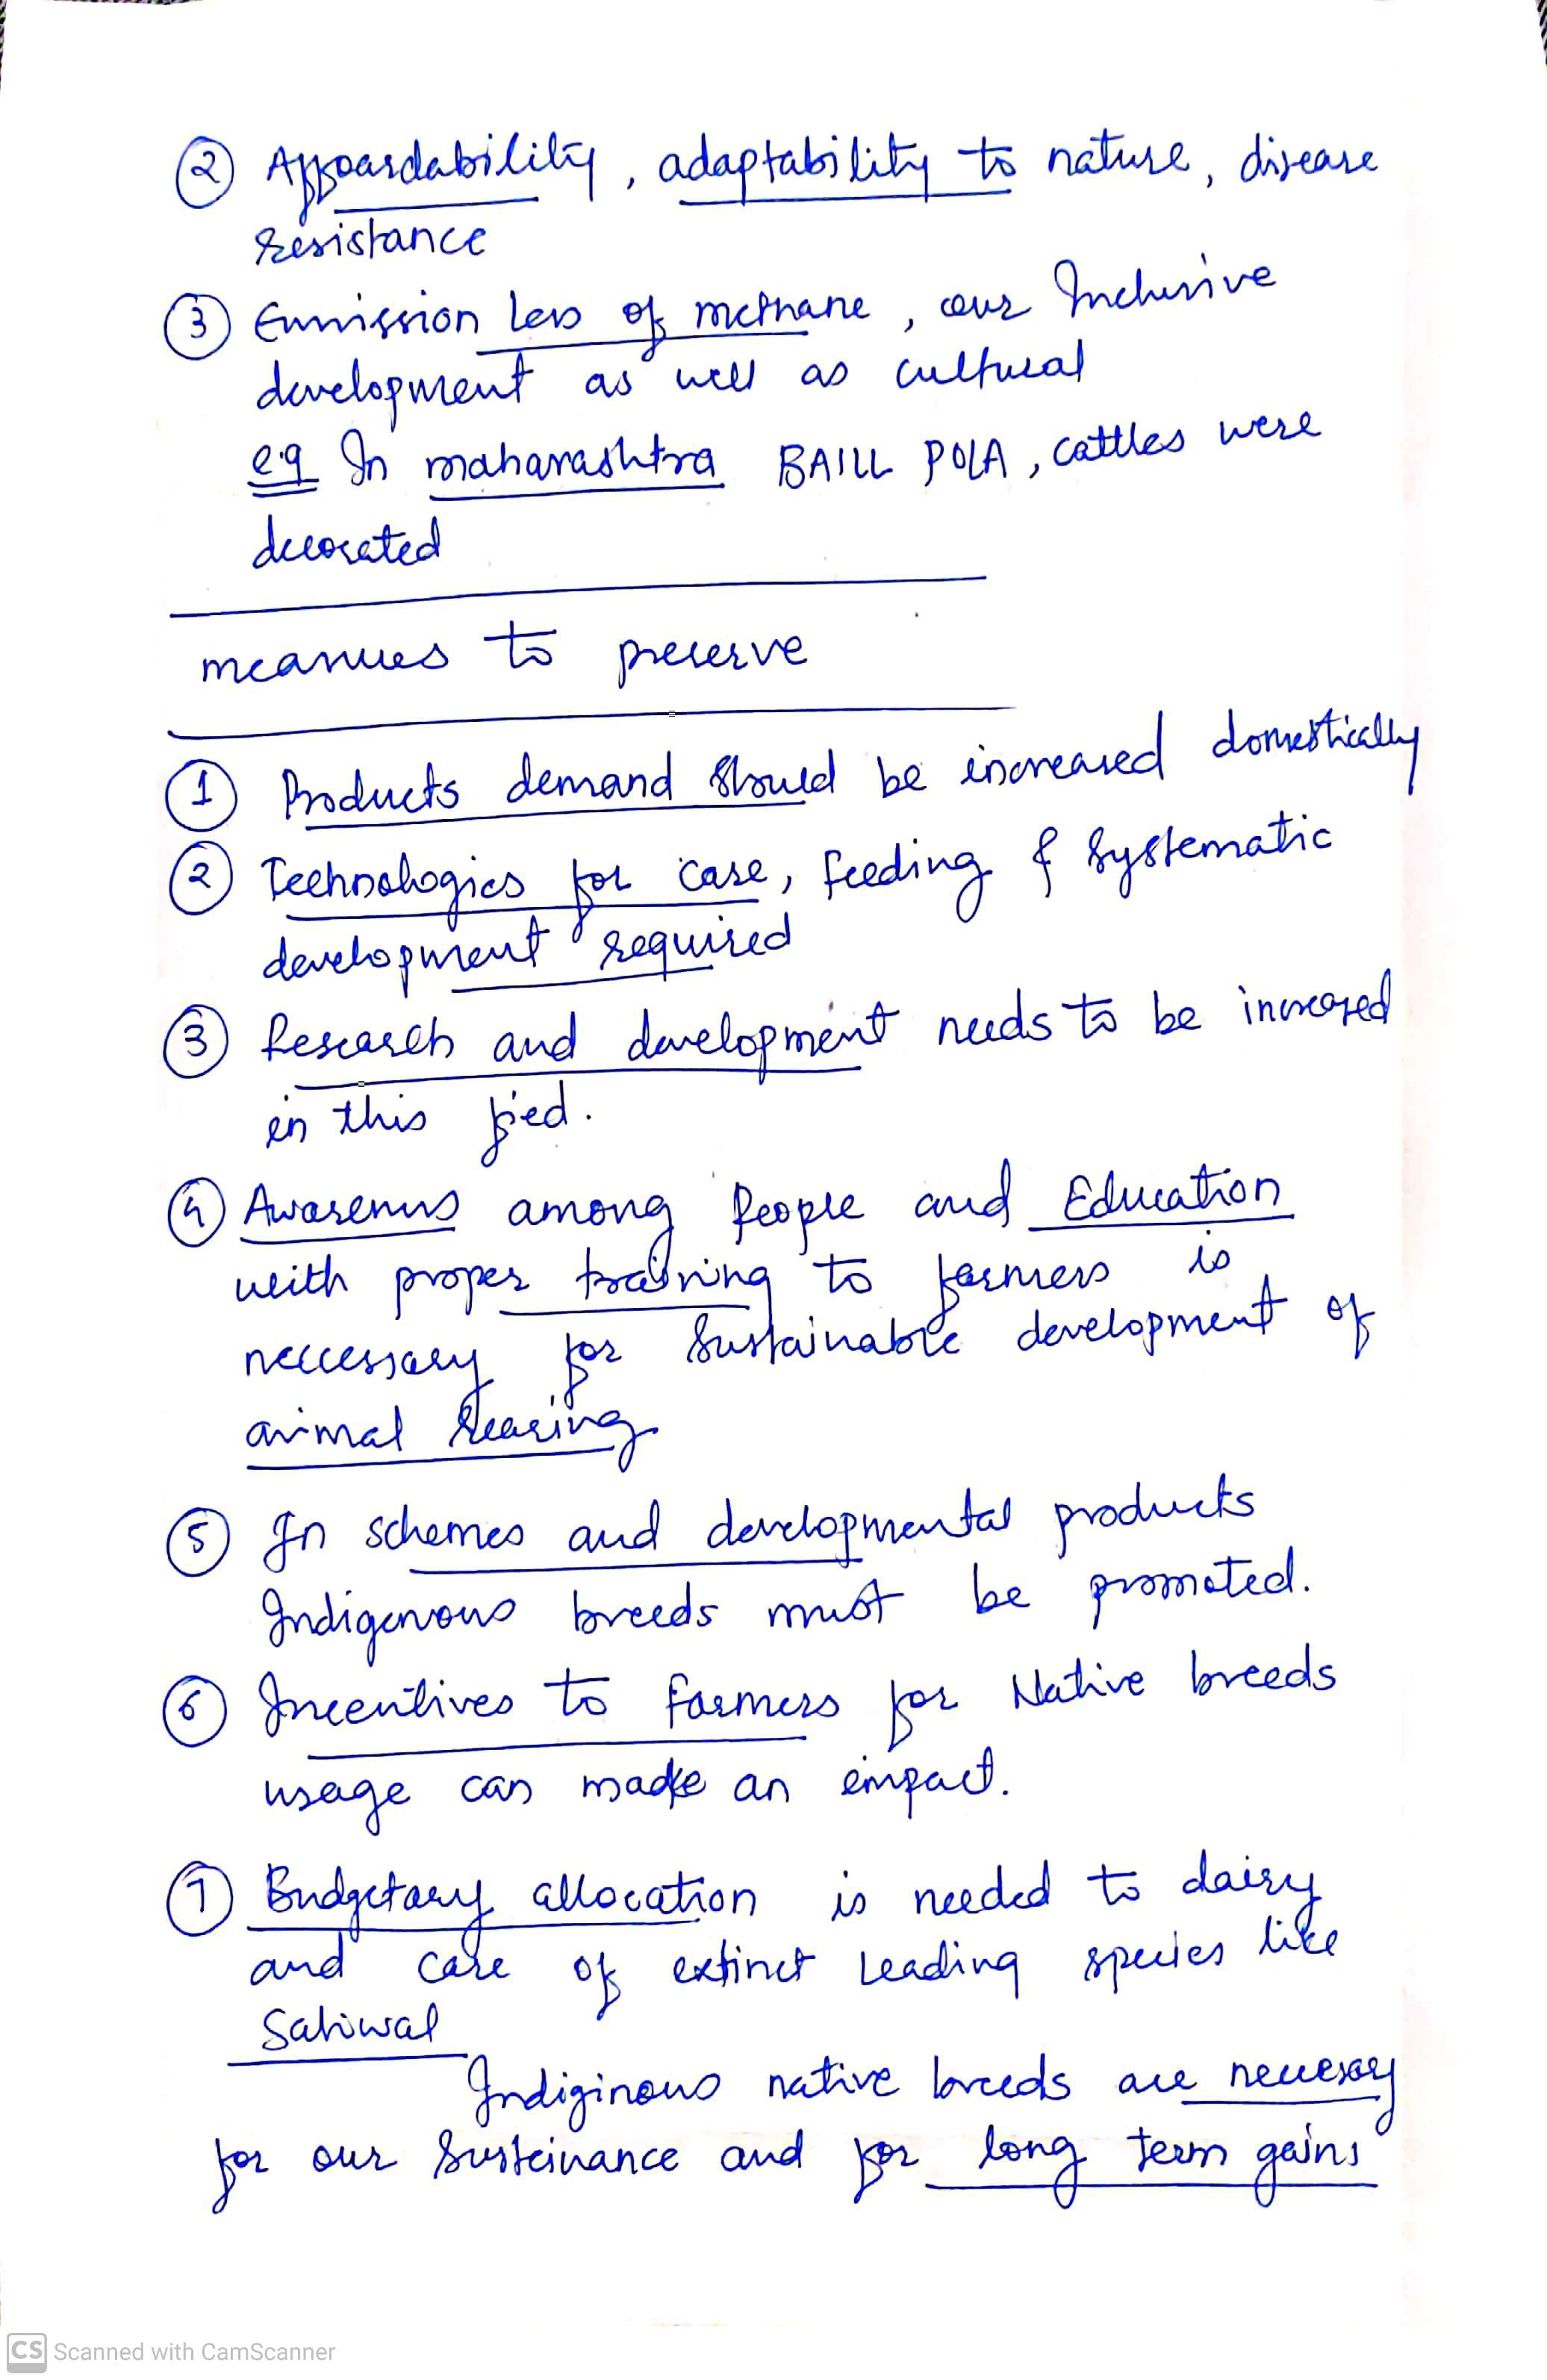 ② Affoardability, adaptability to nature, disease
resistance
③ Emmission less of methane, our Inclusive
development as well as cultural
e.g In maharashtra BAILL POLA, cattles were
decorated
measures to preserve
① Products demand should be increased domestically
② Technologies for care, feeding & systematic
development required
③ Research and development needs to be increased
in this fied.
④ Awareness among People and Education
with proper training to farmers is
neccessary for Sustainable development of
animal rearing
⑤ In schemes and developmental products
Indigenous breeds must be promoted.
⑥ Incentives to farmers for Native breeds
usage can make an impact.
⑦ Budgetary allocation is needed to dairy
and care of extinct leading species like
Sahiwal
Indiginous native breeds are neccesary
for our Susteinance and for long term gains
CS Scanned with CamScanner